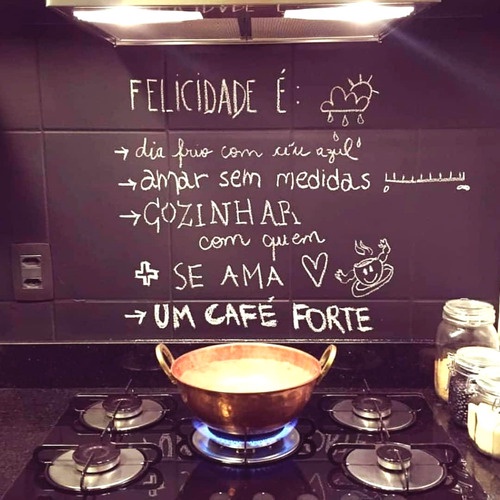 FELICIDADE É:
→ dia frio com céu azul
→ amar sem medidas
→ COZINHAR
com quem
+ SE AMA ♡
→ UM CAFÉ FORTE